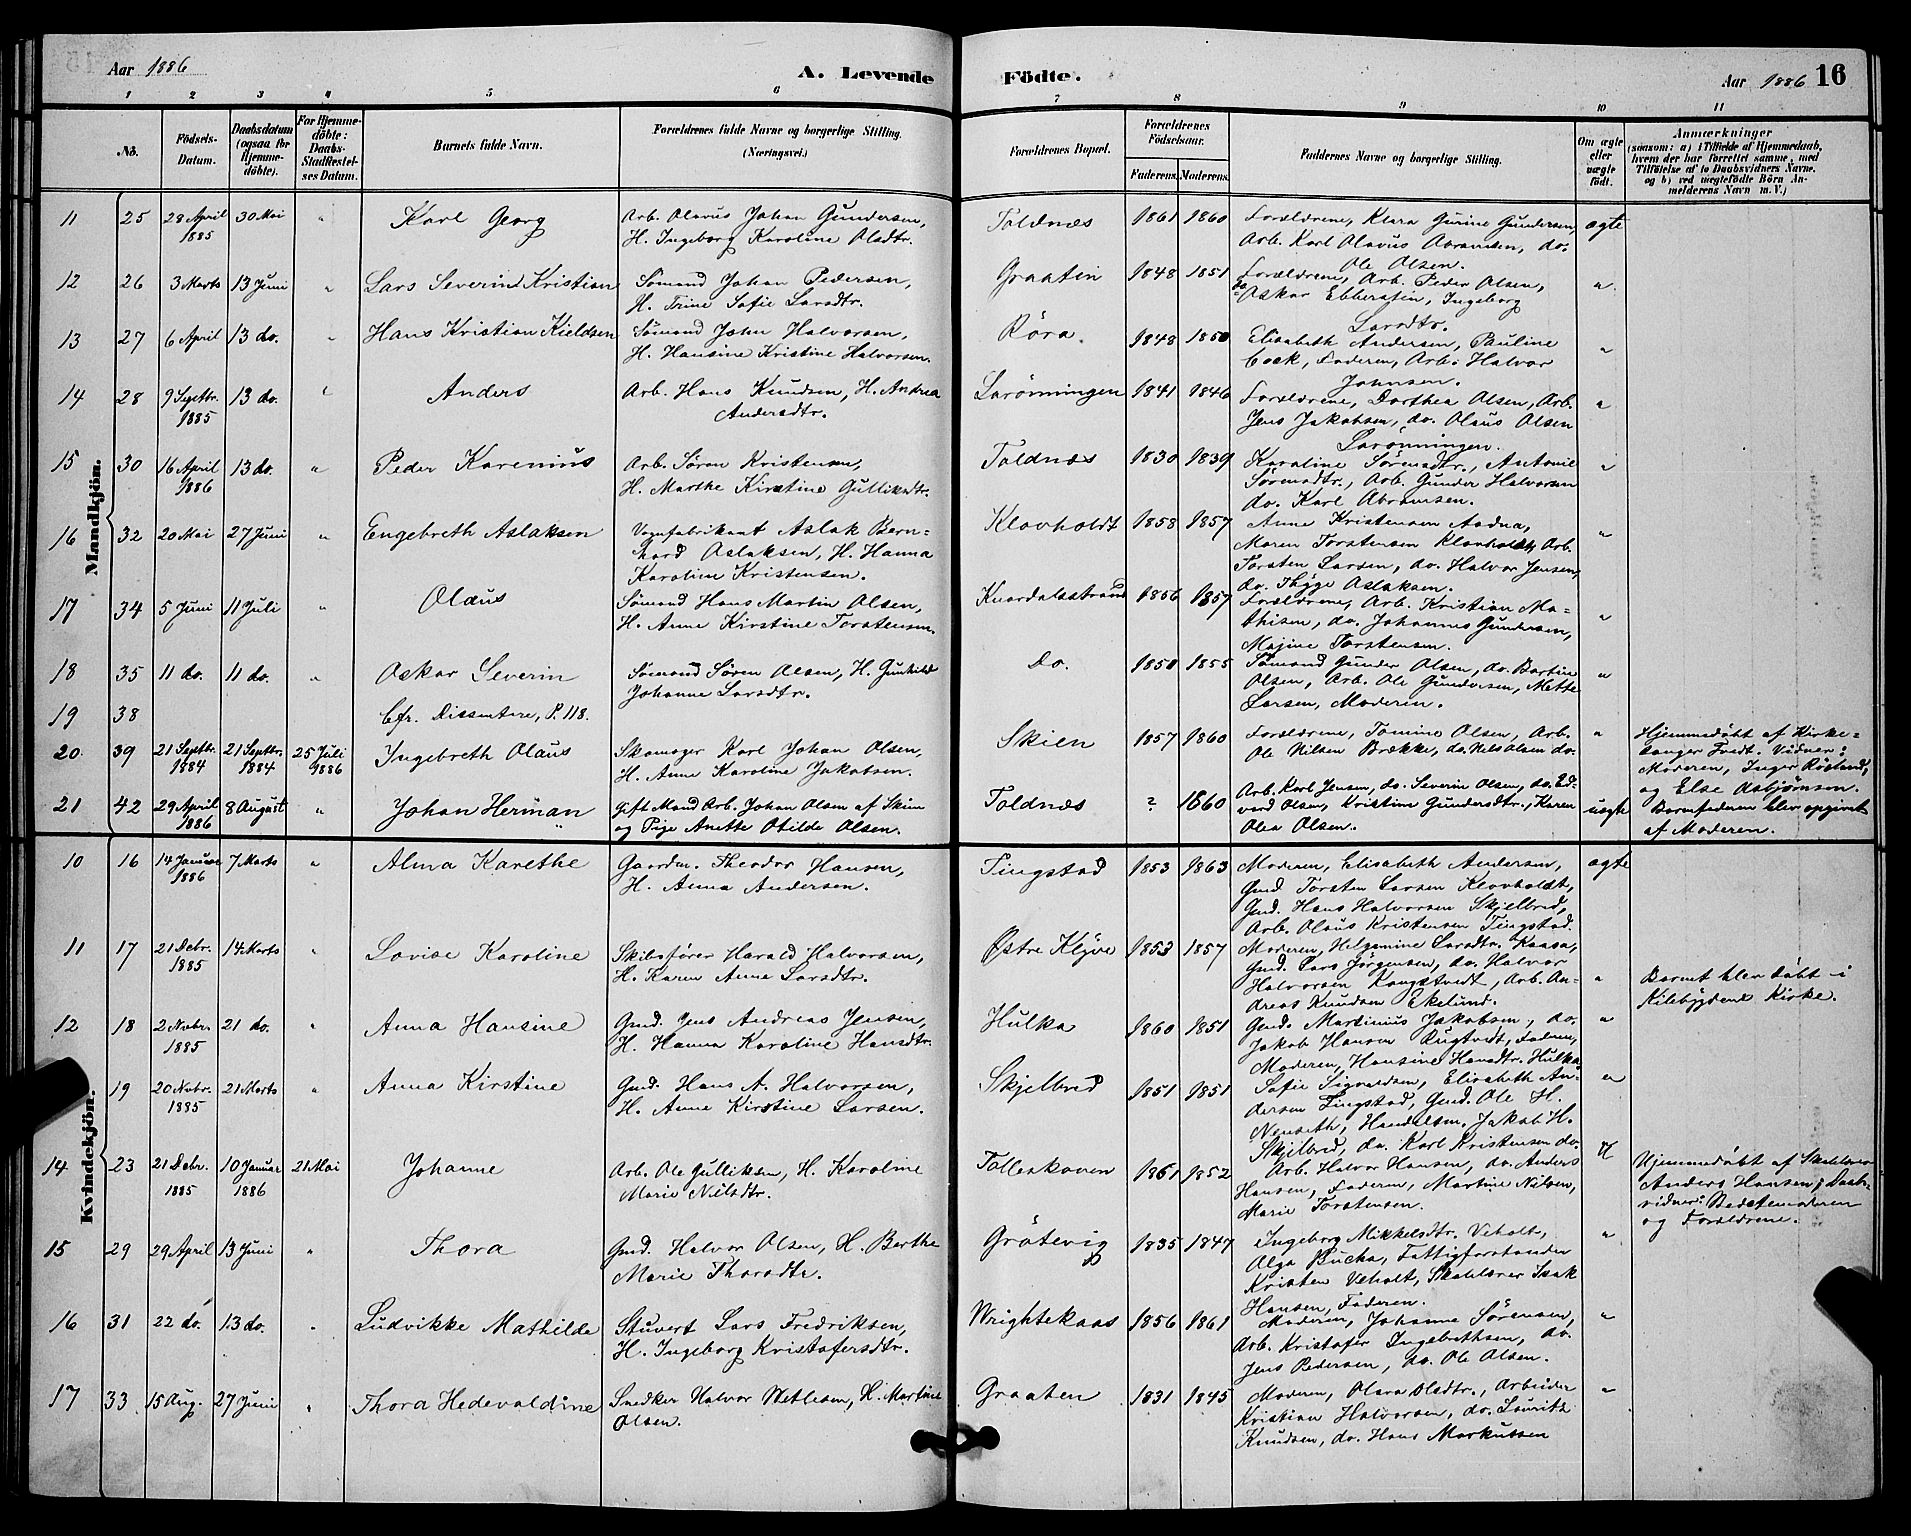 Aar 1886
A. Levende
Födte.
Aar 1886 16
1 2 3 4 5 6 7 8 9 10 11
No.
Födsels-
Datum.
Daabsdatum
(ogsaa for
Hjemme-
döbte).
For Hjemme-
döbte:
Daabs-
Stadfæstel-
ses Datum.
Barnets fulde Navn.
Forældrenes fulde Navne og borgerlige Stilling.
(Næringsvei.)
Forældrenes Bopæl.
Forældrenes
Födselsaar.
Faderens. Moderens.
Faddernes Navne og borgerlige Stilling.
Om ægte
eller
uægte
født.
Anmærkninger
(saasom: a) i Tilfælde af Hjemmedaab,
hvem der har forrettet samme, med
Tilföielse af to Daabsvidners Navne,
og b) ved uægtefödte Börn An-
melderens Navn m. V.)
Mandkjön.
11 25 28 April 30 Mai " Karl Georg Arb. Olavus Johan Gundersen, Toldnæs 1861 1860 Forældrene, Klara Gurine Gundersen, ægte
1885 H. Ingeborg Karoline Olsdtr. Arb. Karl Olavus Abramsen, do.
Ole Olsen.
12 26 3 Marts 13 Juni " Lars Severin Kristian Sømand Johan Pedersen, Graatin 1848 1851 Forældrene, Arb. Peder Olsen, "
H. Trine Sofie Larsdtr. do Oskar Ebbestin, Ingeborg
Larsdtr.
13 27 6 April 13 do. " Hans Kristian Kieldsen Sømand John Halvorsen, Röra. 1848 1850 Elisabeth Andersen, Pauline "
H. Hansine Kristine Halvorsen. Cock, Faderen, Arb. Halvor
Johnsen.
14 28 9 Septbr. 13 do. " Anders Arb. Hans Knudsen, H. Andrea Larønningen 1841 1846 Forældrene, Dorthea Olsen, Arb. "
1885 Andersdtr. Jens Jakobsen, do. Olaus Olsen
Larønningen.
15 30 16 April 13 do. " Peder Karenius Arb. Søren Kristensen, Toldnæs 1830 1839 Karoline Sørensdtr., Antonie "
1886 H. Marthe Kirstine Gulliksdtr. Sørensdtr., Arb. Gunder Halvorsen
do. Karl Abramsen.
16 32 20 Mai 27 Juni " Engebreth Aslaksen Vognfabrikant Aslak Bern- Klovholdt 1858 1857 Anne Kristensen Aadna, "
hard Aslaksen, H. Hanna Maren Torstensen Klovholdt, Arb.
Karoline Kristensen. Torsten Larsen, do. Halvor Jensen,
do. Thyge Aslaksen.
17 34 5 Juni 11 Juli " Olaus Sømand Hans Martin Olsen, Knardalsstrand 1856 1857 Forældrene, Arb. Kristian Ma- "
H. Anne Kirstine Torstensen. thisen, do. Johannes Gundersen,
Majine Torstensen.
18 35 11 do. 11 do. " Oskar Severin Sømand Søren Olsen, H. Gunhild Do. 1850 1855 Sømand Gunder Olsen, do. Bertine "
Johanne Larsdtr. Olsen, Arb. Ole Gundersen, Mette
Larsen, Moderen.
19 38 Cfr. Dissentere, P. 118.
20. 39 21 Septbr. 21 Septbr. 25 Juli Ingebreth Olaus Skomager Karl Johan Olsen, Skien 1857 1860 Forældrene, Tomine Olsen, Arb. " Hjemmedøbt af Kirke-
1884 1884 1886 H. Anne Karoline Jakobsen. Ole Nilsen Brække, do. Nils Olsen do. sanger Tvedt. Vidner:
Moderen, Inger Røsland,
og Else Asbjørnsen.
21 42 29 April 8 August " Johan Herman Gift Mand Arb. Johan Olsen af Skien Toldnæs ? 1860 Arb. Karl Jensen, do. Severin Olsen, do. Ed- uægte Barnefaderen blev opgivet
1886 og Pige Anette Otilde Olsen. vard Olsen, Kristine Gundersdtr., Karen af Moderen.
Olea Olsen.
Kvindekjön.
10 16 14 Januar 7 Marts " Alma Karethe Gaardm. Theodor Hansen, Tingstad 1853 1863 Moderen, Elisabeth Andersen, ægte
1886 H. Anna Andersen. Gmd. Torsten Larsen Klovholdt,
Gmd. Hans Halvorsen Skjelbred,
Arb. Olaus Kristensen Tingstad.
11 17 21 Debr. 14 Marts " Lovise Karoline Skibsfører Harald Halvorsen, Østre Klyve 1853 1857 Moderen, Helgamine Larsdtr. Kaasa, " Barnet blev døbt i
1885 H. Karen Anne Larsdtr. Gmd. Lars Jørgensen, do. Halvor Kilebygdens Kirke.
Halvorsen Kongstvedt, Arb. An-
dreas Knudsen Ekelund.
12 18 2 Novbr. 21 do. " Anna Hansine Gmd. Jens Andreas Jensen, Hulka 1860 1851 Gmd. Martinius Jakobsen, do. "
1885 H. Hanna Karoline Hansdtr. Jakob Hansen Rugtvedt, Faderen,
Moderen, Hansine Hansdtr. Hulka.
19 20 Novbr. 21 Marts " Anna Kirstine Gmd. Hans A. Halvorsen, Skjelbred 1851 1851 Sofie Sigvaldsen, Elisabeth An- "
1885 H. Anne Kirstine Larsen. dersen Tingstad, Gmd. Ole H.
Nenseth, Handelsm. Jakob H.
Skjelbred, do. Karl Kristensen do.
14 23 21 Debr. 10 Januar 21 Mai Johanne Arb. Ole Gulliksen, H. Karoline Tolleskoven 1861 1852 Arb. Halvor Hansen, do. Anders Hjemmedøbt af Skolelærer
1885 1886 Marie Nilsdtr. Hansen, Faderen, Martine Nilsen, Anders Hansen; Daabs-
Marie Torstensen. vidner: Bedstemoderen
og Forældrene.
15 29 29 April 13 Juni " Thora Gmd. Halvor Olsen, H. Berthe Grötevig 1835 1847 Ingeborg Mikkelsdtr. Veholt, "
Marie Thorsdtr. Alga Bucka, Fattigforstander
Kristen Veholt, Skolelærer Isak
Hansen, Faderen.
16 31 22 do. 13 do. " Ludvikke Mathilde Stuvert Lars Fredriksen, Wrightekaas 1856 1861 Moderen, Johanne Sörensen, "
H. Ingeborg Kristofersdtr. Arb. Kristofer Ingebrethsen, do.
Jens Pedersen, do. Ole Olsen.
17 33 15 Aug. 27 Juni " Thora Hedevaldine Snedker Halvor Netlesen, H. Martine Graaten 1831 1845 Moderen, Olava Olsdtr., Arbeider "
Olsen. Kristian Halvorsen, do. Lauritz
Knudsen, do. Hans Markussen